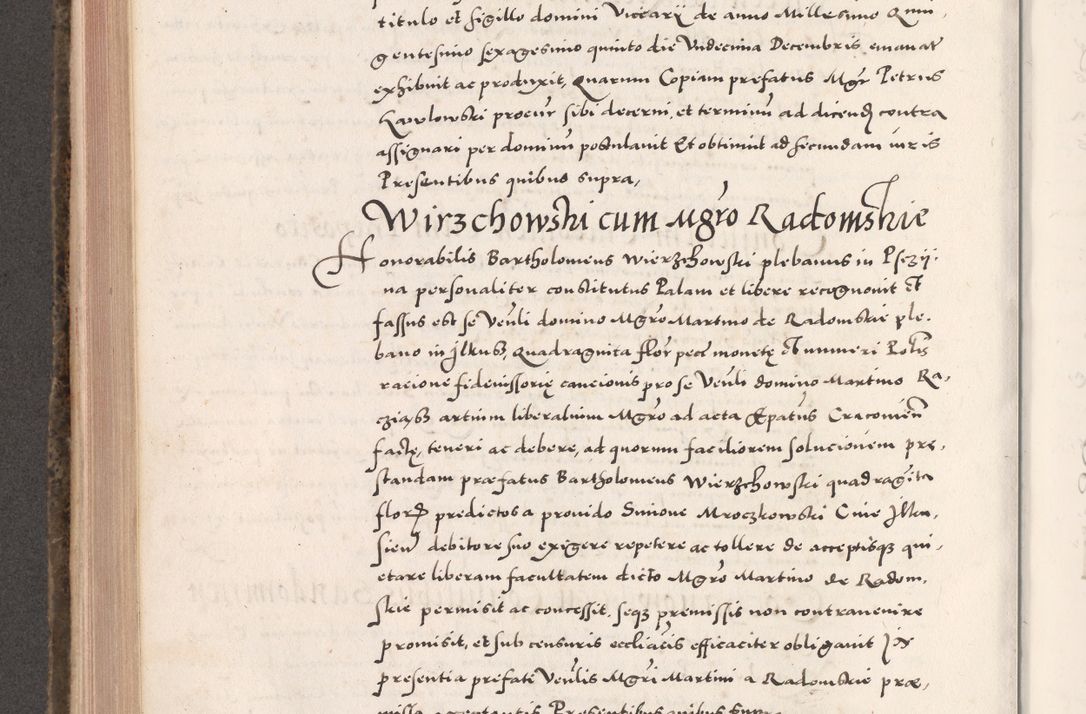 titulo et sigillo domini Vicarÿ de anno Millesimo Quin,
gentesimo sexagesimo quinto die Vndecima Decembris emanat
exhibuit ac produxit, Quarum Copiam prefatus Mgr Petrus
procur sibi decerni, et terminũ ad dicend contra
assignari per dominũ postulauit Et obtinuit ad secundam iuris
Presentibus quibus supra,
Wirzchowski cum Mgro Radomskie
Honorabilis Bartholomeus Wierzchowski plebanus in Psczÿ.
na personaliter constitutus Palam et libere recognouit et
fassus est se Venli domino Mgro Martino de Radomskie ple.
bano in Jlkusz, Quadraginta flor pec monetę et numeri Polis
racione fideiussorię caucionis pro se Venli domino Martino Ra,
artium liberalium Mgro ad acta Epatus Cracovien
factę, teneri ac debere, ad quorum faciliorem solucionem prę,
standam præfatus Bartholomeus Wierzchowski quadragita
flor predictos a prouido Simone Mroczkowski Ciue Jlku,
sien debitore suo exigere repetere ac tollere de acceptisq qui,
etare liberam facultatem dicto Mgro Martino de Radom,
skie permisit ac concessit. seq premissis non contrauenire
promisit, et sub censuris eccliacis efficaciter obligauit In
presentia prefati Venlis Mgri Martini a Radomskie præ,
missa acceptantis Presentibus quibus supra